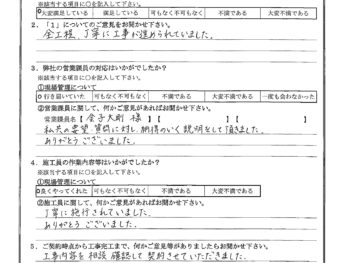 ※該当する項目に○を記入して下さい。
○大変満足している 満足している 可もなく不可もなく 不満である 大変不満である
2．「1」についてのご意見をお聞かせ下さい。
全工程、丁寧に工事が進められていました。
3．弊社の営業課員の対応はいかがでしたか？
※該当する項目に○を記入して下さい。
①現場管理について
○行き届いていた 可もなく不可もなく 不満である 大変不満である 一度も会わなかった
②営業課員に関して、何かご意見があればお聞かせ下さい。
営業課員名【 金子大剛 様 】【 】【 】
私共の要望・質問に対し、納得のいく説明をして頂きました。
ありがとうございました。
4．施工員の作業内容等はいかがでしたか？
※該当する項目に○を記入して下さい。
①現場管理について
○良くやってくれた 可もなく不可もなく 不満である 大変不満である
②施工員に関して、何かご意見があればお聞かせ下さい。
丁寧に施行されていました。
ありがとうございました。
5．ご契約時点から工事完工まで、何かご意見等がありましたらお聞かせ下さい。
工事内容を相談、確認して契約させていただきました。